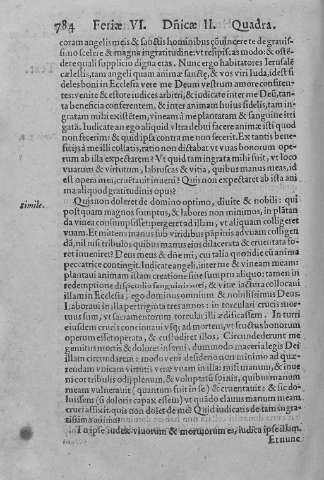 784 Feriæ VI. Dñicæ II. Quadra.
coram angelis meis & sanctis hominibus cõuincere te de grauis-
simo scelere & magna ingratitudine: vt respiscas modo: & oste-
dere quali supplicio digna etas. Nunc ergo habitatores Ierusalē
cælestis, tam angeli quam animæ sanctę, & vos viri Iuda, idest fi
deles boni in Ecclesia vere me Deum vestrum amore confiten-
tes: venite & estote iudices arbitri, & iudicate inter me Deũ, tan-
ta beneficia conferentem, & inter animam huius fidelis, tam in-
gratam mihi existētem, vineam à me plantatam & sanguine irri
gatā. Iudicate an ego aliquid vltra debui facere animæ isti quod
non fecerim: & quid ipsa contra me non fecerit. Ex tantis bene-
ficijs à me illi collatis, ratio non dictabat vt vuas bonorum ope-
rum ab illa expectarem? Vt quid tam ingrata mihi fuit, vt loco
vuarum & virtutum, labruscas & vitia, quibus manus meas, id
est opera mea, cruciauit in eam? Quis non expectaret ab ista ani
ma aliquod gratitudinis opus?
Simile. Quis non doleret de domino optimo, diuite & nobili: qui
postquam magnos sumptus, & labores non minimos, in plātan
da vinea consumpsisset pergeret ad illam, vt aliquam colligeret
vuam. Et mittens manus sub viridibus pāpinis ad vuam colligen
dā, nil nisi tribulos quibus manus eius dilacerata & cruentata fo-
ret inueniret? Deus meus & dñe mi, cui talia quotidie cũ anima
peccatrice contingit. Iudicate angeli, inter me & vineam meam:
plantaui animam istam creatione sine sumptu aliquo: tamen in
redemptione dispendio sanguinis mei, & vitæ iactura collocaui
illam in Ecclesia, ego dominus omnium & nobilissimus Deus.
Laboraui in illa pertriginta tres annos: in torculari crucis mor-
tuus sum, vt sacramentorum torcular illi ædificassem. In turri
eiusdem crucis concionaui vsq; ad mortem, vt fructus bonorum
operum esset operata, & custodiret illos. Circundederunt me
gemitus mortis & dolores inferni, dum modo maceria legis Dei
illam circundarem: modo veni desiderio non minimo ad quæ-
rendam vnicam virtutis veræ vuam in illa: misi manum, & inue
ni eor tribulis odij plenum, & voluptatũ spinis, quibus manum
meam vulnerauit (quantum fuit in se) & cruentauit: & sic do-
luissem (si doloris capax essem) vt quādo clauus manum meam
cruci affixit. quis non dolet de me? Quid iudicatis de tam ingra-
tissima anima?
Tu ipse iudex viuorum & mortuorum es, iudica ipse illam.
Et nunc